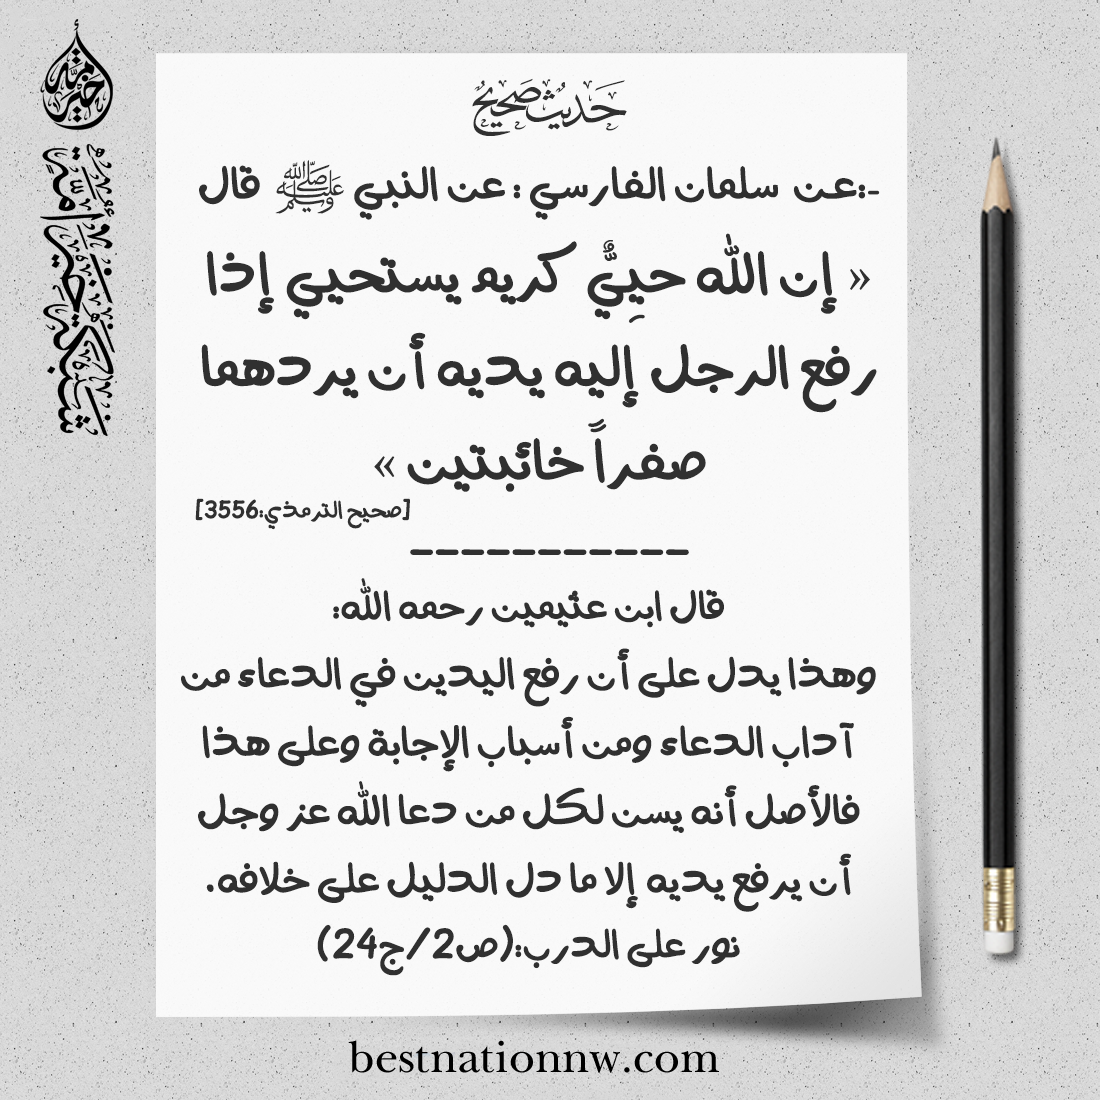 حديث صحيح
-:عن سلمان الفارسي : عن النبي ﷺ قال
« إن الله حيِيٌّ كريم يستحيي إذا
رفع الرجل إليه يديه أن يردهما
صفراً خائبتين »
[صحيح الترمذي:3556]
-----------
قال ابن عثيمين رحمه الله:
وهذا يدل على أن رفع اليدين في الدعاء من
آداب الدعاء ومن أسباب الإجابة وعلى هذا
فالأصل أنه يسن لكل من دعا الله عز وجل
أن يرفع يديه إلا ما دل الدليل على خلافه.
نور على الدرب:(ص2/ج24)
خير أمة
شبكة خير أمة
bestnationnw.com